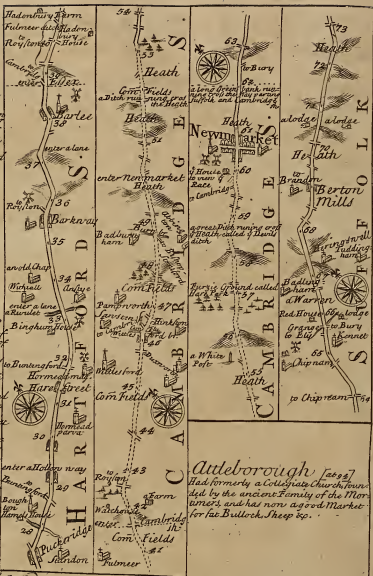 Hadenbury Farm
Fulmeer
Hadenbury House
to Royston
enter Essex
39
Barlee
38
enter a lane
37
to Royston
36
Barkway
35
an old Chap
34
Wickhall
Anstye
enter a lane
a Rivulet
33
Bingham House
32
to Buntingford
Hormead
Hare Street
31
Hormead parva
30
enter a Hollow way
29
Hamels House
28
Puckridge
Standon
HARTFORDS.
54
53
Heath
Corn Fields
a Ditch running cross the Heath
Heath
51
enter Newmarket Heath
Badburham
Corn Fields
47
Pampsworth
Hinkson
Witlesford
45
Corn Fields
44
43
to Royston
Farm
42
Whitehouse
enter Cambridg sh.
Corn Fields
41
Fulmeer
CAMBRIDGES.
63
to Bury
62
a long Green bank running cross the way parting Suffolk and Cambridg sh.
Heath
61
Newmarket
60
House to view Race
to Cambridg
59
a great Ditch running cross y Heath called y Devils ditch
58
57
56
a White Post
55
Heath
CAMBRIDGES.
73
Heath
72
a lodge
a lodge
Heath
70
to Brandon
Berton Mills
69
68
Tuddingham
a Warren
Red House
66
a lodge
Grange
to Ely
to Bury
Kennett
65
Chipnam
to Chipream
64
SUFFOLK
Attleborough [at 94]
Had formerly a Collegiate Church, founded by the ancient Family of the Mortimers, and has now a good Market for fat Bullock, Sheep &c.